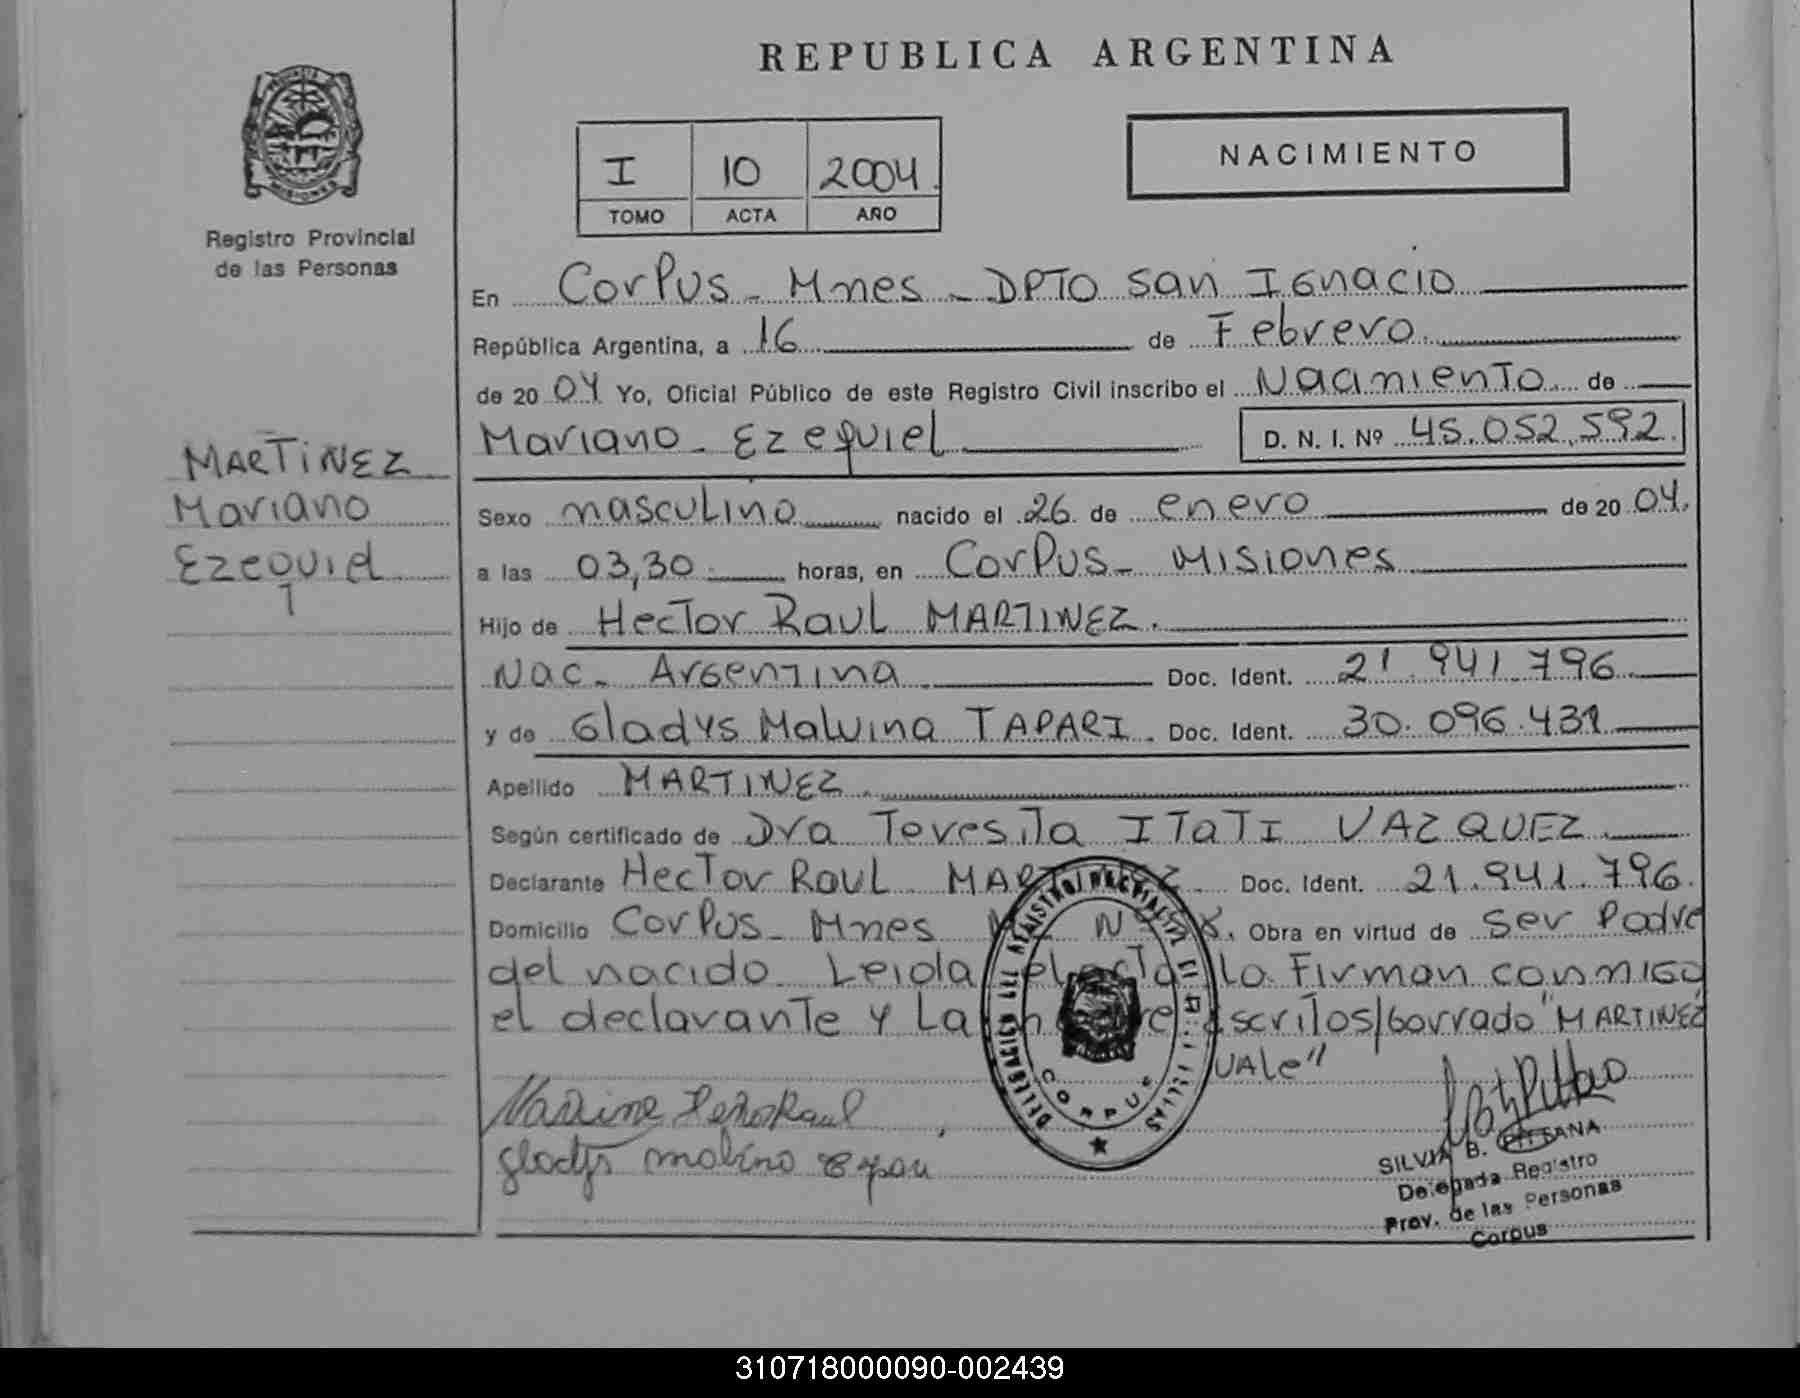 REPUBLICA ARGENTINA
NACIMIENTO
I 10 2004
TOMO ACTA AÑO
MISIONES
Registro Provincial
de las Personas
MARTINEZ
Mariano
Ezequiel
En Corpus - Mnes - DPTO San Ignacio
República Argentina, a 16 de Febrero
de 20 04 Yo, Oficial Público de este Registro Civil inscribo el Nacimiento de
Mariano - Ezequiel D. N. I. Nº 45.052.592.
Sexo masculino nacido el 26 de enero de 20 04.
a las 03,30 horas, en Corpus - Misiones
Hijo de Hector Raul MARTINEZ.
Nac. Argentina Doc. Ident. 21.941.796
y de Gladys Malvina TAPARI. Doc. Ident. 30.096.431
Apellido MARTINEZ.
Según certificado de Dra Teresita ITATI VAZQUEZ
Declarante Hector Raul MARTINEZ Doc. Ident. 21.941.796.
Domicilio Corpus - Mnes Obra en virtud de ser Padre
del nacido Leida el acta la Firman conmigo
el declarante y La escritos/borrado "MARTINEZ
VALE"
CORPUS
SILVIA B. PITTANA
Delegada Registro
Prov. de las Personas
Corpus
310718000090-002439